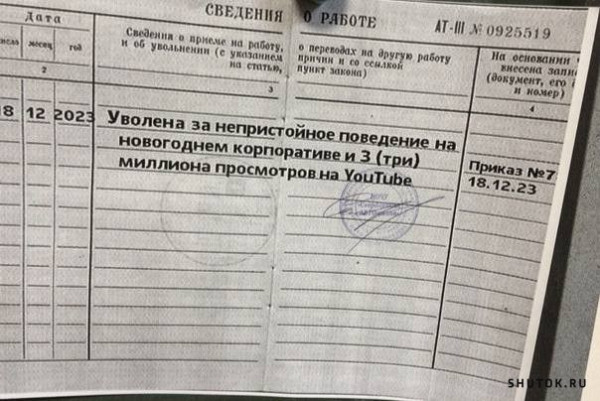 СВЕДЕНИЯ О РАБОТЕ
АТ-III № 0925519
Дата
число месяц год
Сведения о приеме на работу,
и об увольнении (с указанием
на статью,
о переводах на другую работу
причин и со ссылкой
пункт закона)
На основании
внесена
(документ, его
и номер)
2
3
4
18 12 2023
Уволена за непристойное поведение на
новогоднем корпоративе и 3 (три)
миллиона просмотров на YouTube
Приказ №7
18.12.23
SHUTOK.RU